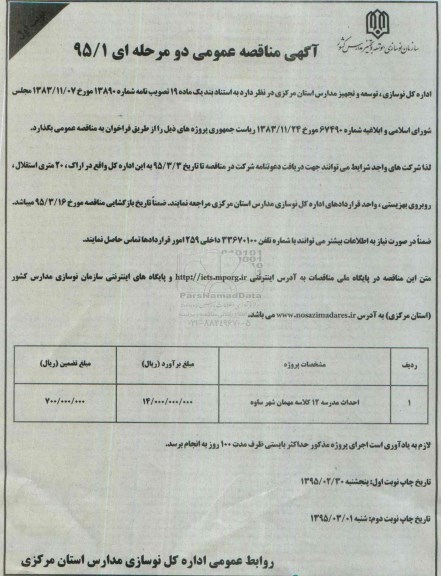 نوبت اول
سازمان نوسازی، توسعه و تجهیز مدارس کشور
آگهی مناقصه عمومی دو مرحله ای ۹۵/۱
اداره کل نوسازی ، توسعه و تجهیز مدارس استان مرکزی در نظر دارد به استناد بند یک ماده ۱۹ تصویب نامه شماره ۱۳۸۹۰ مورخ ۱۳۸۳/۱۱/۰۷ مجلس
شورای اسلامی و ابلاغیه شماره ۶۷۴۹۰ مورخ ۱۳۸۳/۱۱/۲۴ ریاست جمهوری پروژه های ذیل را از طریق فراخوان به مناقصه عمومی بگذارد.
لذا شرکت های واجد شرایط می توانند جهت دریافت دعوتنامه شرکت در مناقصه تا تاریخ ۹۵/۳/۳ به این اداره کل واقع در اراک ، ۲۰ متری استقلال ،
روبروی بهزیستی ، واحد قراردادهای اداره کل نوسازی مدارس استان مرکزی مراجعه نمایند. ضمناً تاریخ بازگشایی مناقصه مورخ ۹۵/۳/۱۶ میباشد.
ضمناً در صورت نیاز به اطلاعات بیشتر می توانند با شماره تلفن ۳۳۶۷۰۱۰۰ داخلی ۲۵۹ امور قراردادها تماس حاصل نمایند.
متن این مناقصه در پایگاه ملی مناقصات به آدرس اینترقتی http//iets.mporg.ir و پایگاه های اینترنتی سازمان نوسازی مدارس کشور
(استان مرکزی) به آدرس www.nosazimadares.ir می باشد.
ParsNamadData
ردیف مشخصات پروژه مبلغ برآورد (ریال) مبلغ تضمین (ریال)
۱ احداث مدرسه ۱۲ کلاسه مهمان شهر ساوه ۱۴/۰۰۰/۰۰۰/۰۰۰ ۷۰۰/۰۰۰/۰۰۰
لازم به یادآوری است اجرای پروژه مذکور حداکثر بایستی ظرف مدت ۱۰۰ روز به انجام برسد.
تاریخ چاپ نوبت اول: پنجشنبه ۱۳۹۵/۰۲/۳۰
تاریخ چاپ نوبت دوم: شنبه ۱۳۹۵/۰۳/۰۱
روابط عمومی اداره کل نوسازی مدارس استان مرکزی